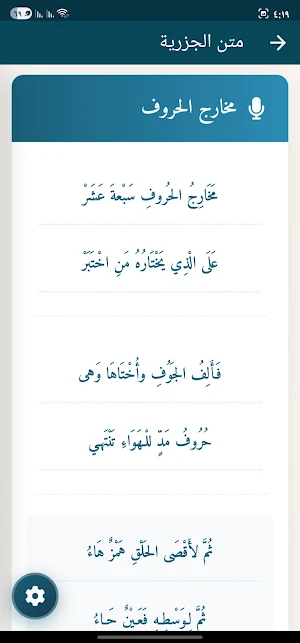 ٤:١٩
متن الجزرية
مخارج الحروف
مَخَارِجُ الحُروفِ سَبْعةَ عَشَرْ
عَلَى الْذِي يَخْتَارُهُ مَنِ اخْتَبَرْ
فَأَلِفُ الجَوْفِ وأُخْتَاهَا وَهى
حُرُوفُ مَدٍّ للْهَوَاءِ تَنْتَهي
ثُمَّ لأَقْصَى الحَلْقِ هَمْزٌ هَاءُ
ثُمَّ لِوَسْطِهِ فَعَيْنٌ حَاءُ